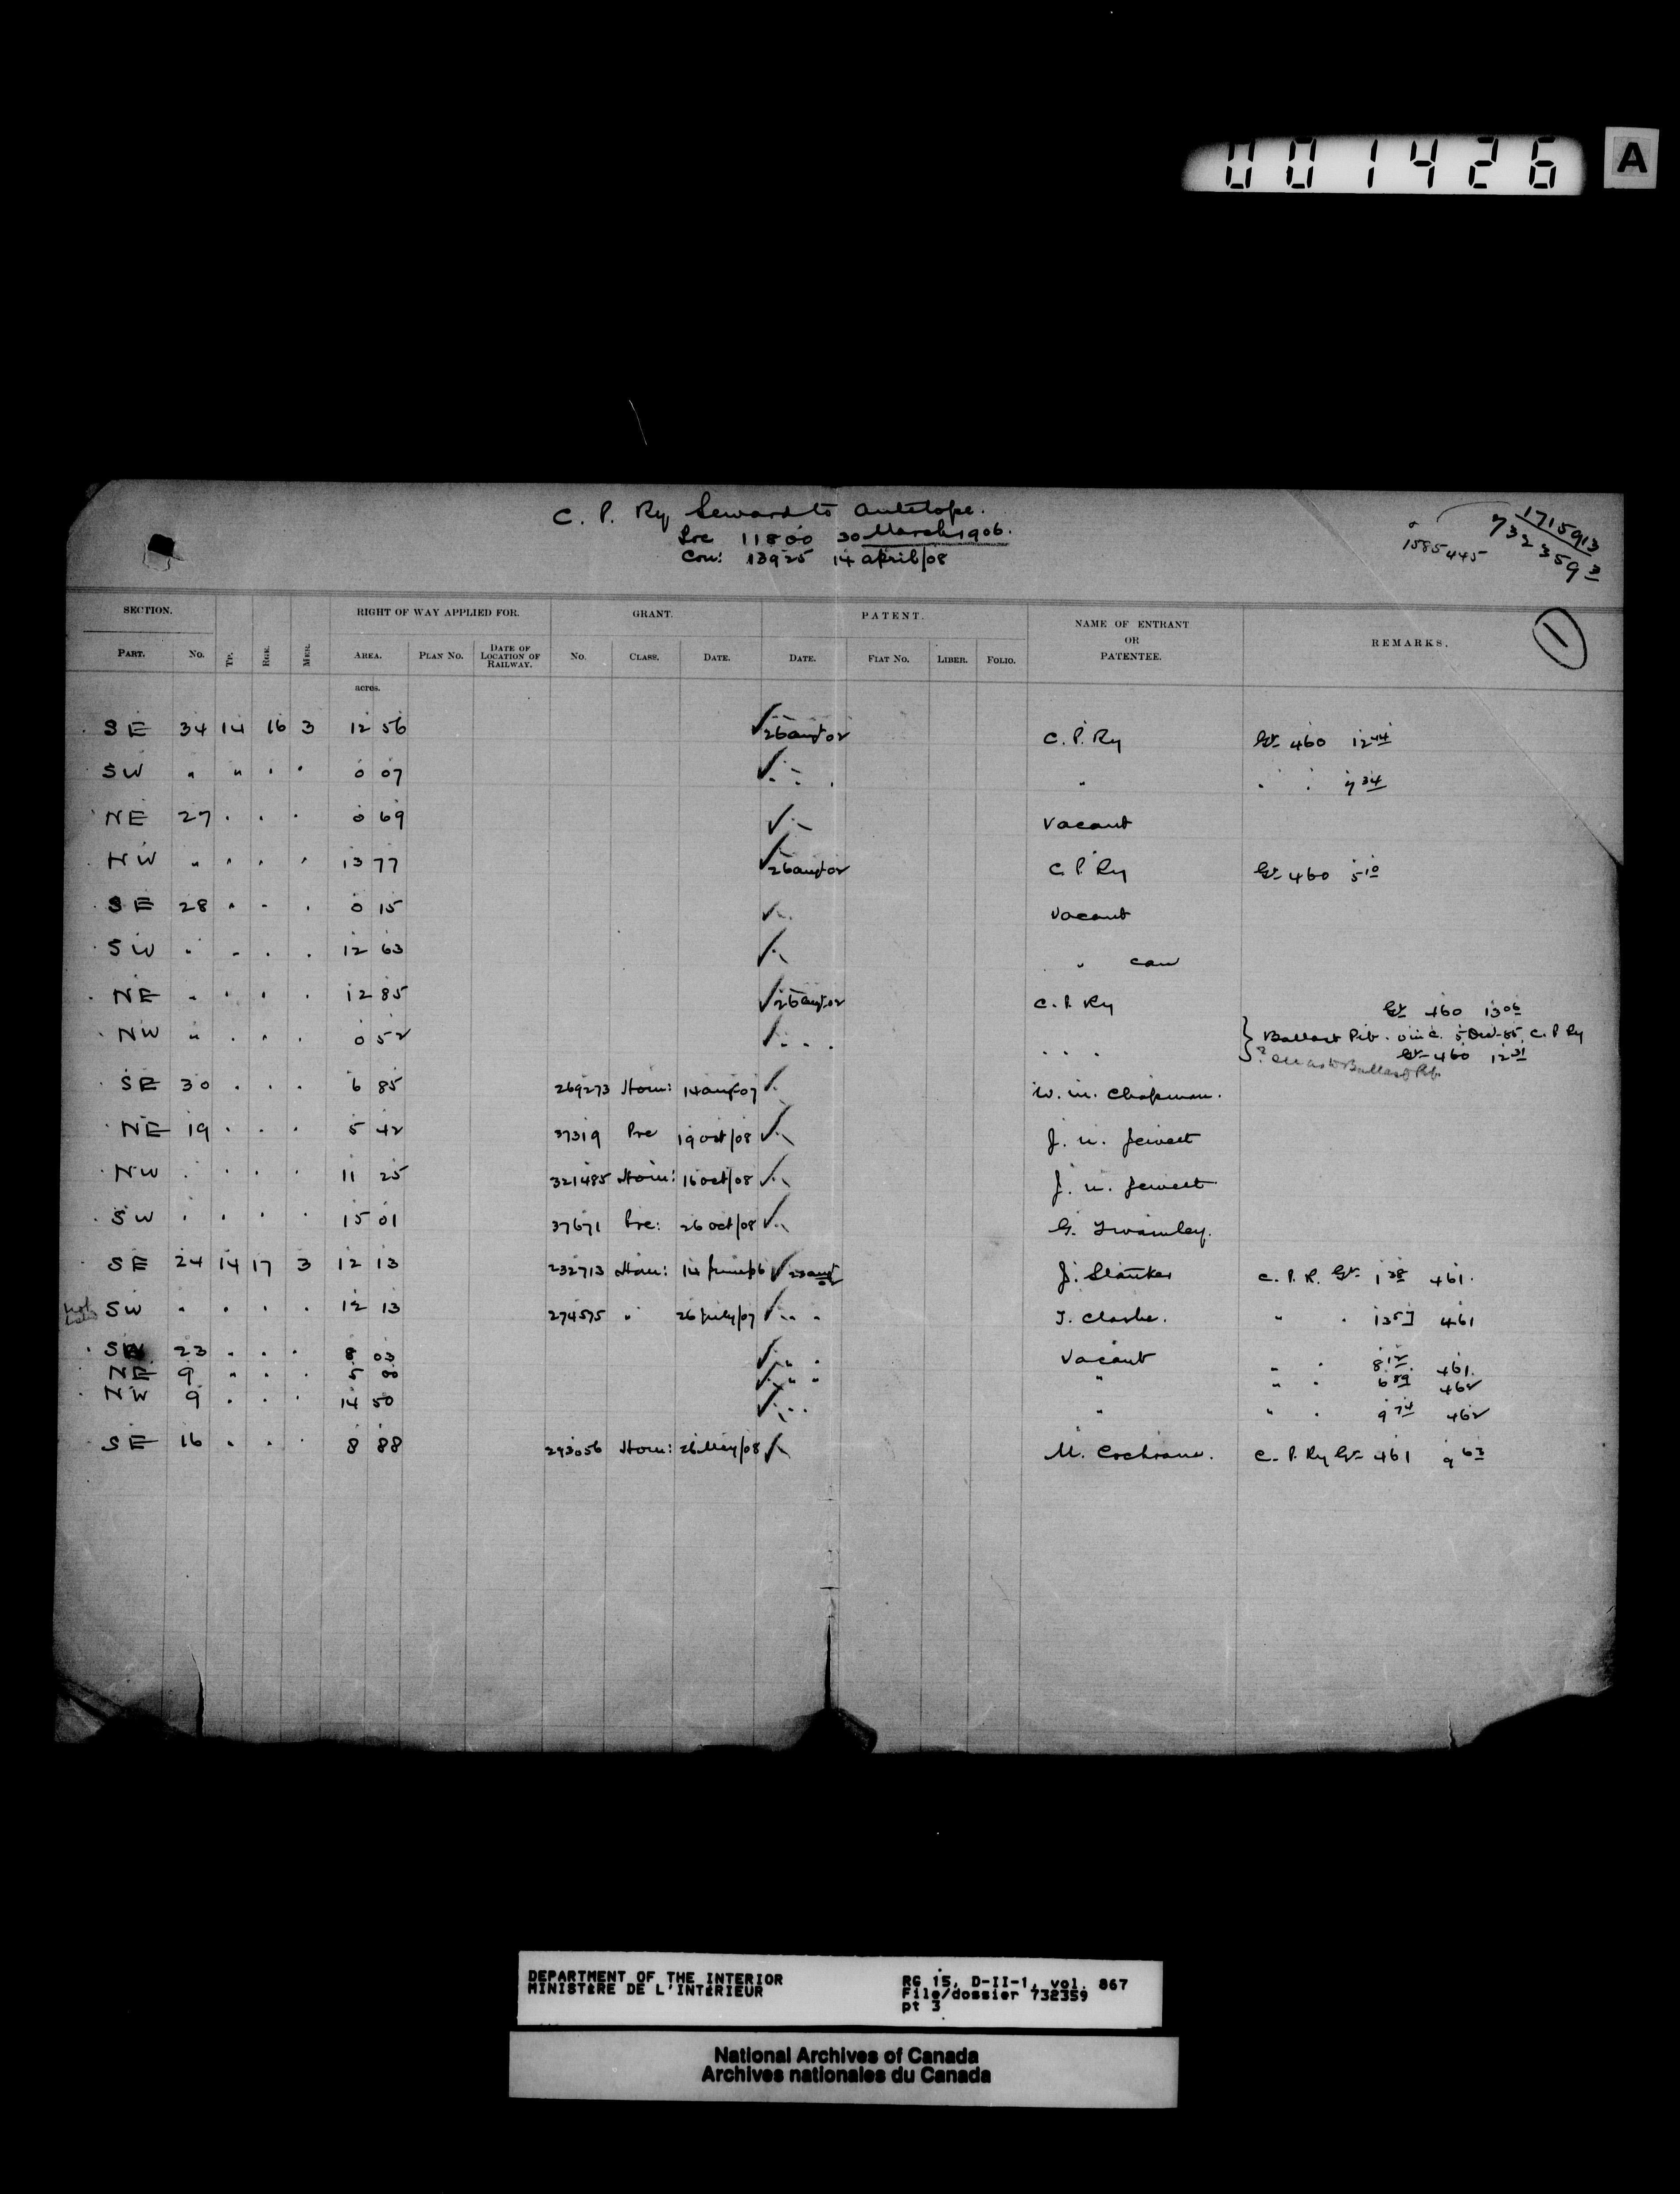 001426 A
C. P. Ry Seward to Antelope.
Loc 11800 30 March 1906.
Con: 13925 14 april/08
1585445
1715913
732359 3
1
SECTION. RIGHT OF WAY APPLIED FOR. GRANT. PATENT. NAME OF ENTRANT OR PATENTEE. REMARKS.
PART. NO. TP. RGE. MER. AREA. PLAN NO. DATE OF LOCATION OF RAILWAY. NO. CLASS. DATE. DATE. FIAT NO. LIBER. FOLIO.
acres.
SE 34 14 16 3 12 56 ✓ 26 augt 02 C. P. Ry Gr 460 12 44
SW " " . . 0 07 ✓ " . . 7 34
NE 27 . . . 0 69 ✓ Vacant
NW " . . . 13 77 ✓ 26 augt 02 C. P. Ry Gr 460 5 10
SE 28 . . . 0 15 ✓ Vacant
SW . . . . 12 63 ✓ " can
NE . . . . 12 85 ✓ 26 augt 02 C. P. Ry Gr 460 13 06
NW " . . . 0 52 ✓ . . . . . . Ballast Pit . O in C. 5 Dec. 85. C. P Ry
Gr 460 12 31
? as to Ballast Pit
SE 30 . . . 6 85 269273 Hom: 14 aug 07 ✓ W. M. Chapman.
NE 19 . . . 5 42 37319 Pre 19 oct/08 ✓ J. N. Jewett
NW . . . . 11 25 321485 Hom: 16 oct/08 ✓ J. N. Jewett
SW . . . . 15 01 37671 Pre: 26 oct/08 ✓ G. Twamley.
SE 24 14 17 3 12 13 232713 Hom: 14 June/06 ✓ 23 augt 02 J. C. P. R. Gr 1 38 461.
SW . . . . 12 13 274575 " 26 July/07 ✓ . . . T. Clarke. " . 461
SW 23 . . . 8 03 ✓ " . Vacant " . 8 12 461.
NE 9 " . . 5 00 ✓ " " " " . 6 89 462
NW 9 . . . 14 50 ✓ . . . " " . 9 74 462
SE 16 . . . 8 88 293056 Hom: 26 May/08 ✓ M. Cochrane. C. P. Ry Gr 461 9 63
DEPARTMENT OF THE INTERIOR
MINISTÈRE DE L'INTÉRIEUR
RG 15, D-II-1, vol. 867
File/dossier 732359
pt 3
National Archives of Canada
Archives nationales du Canada